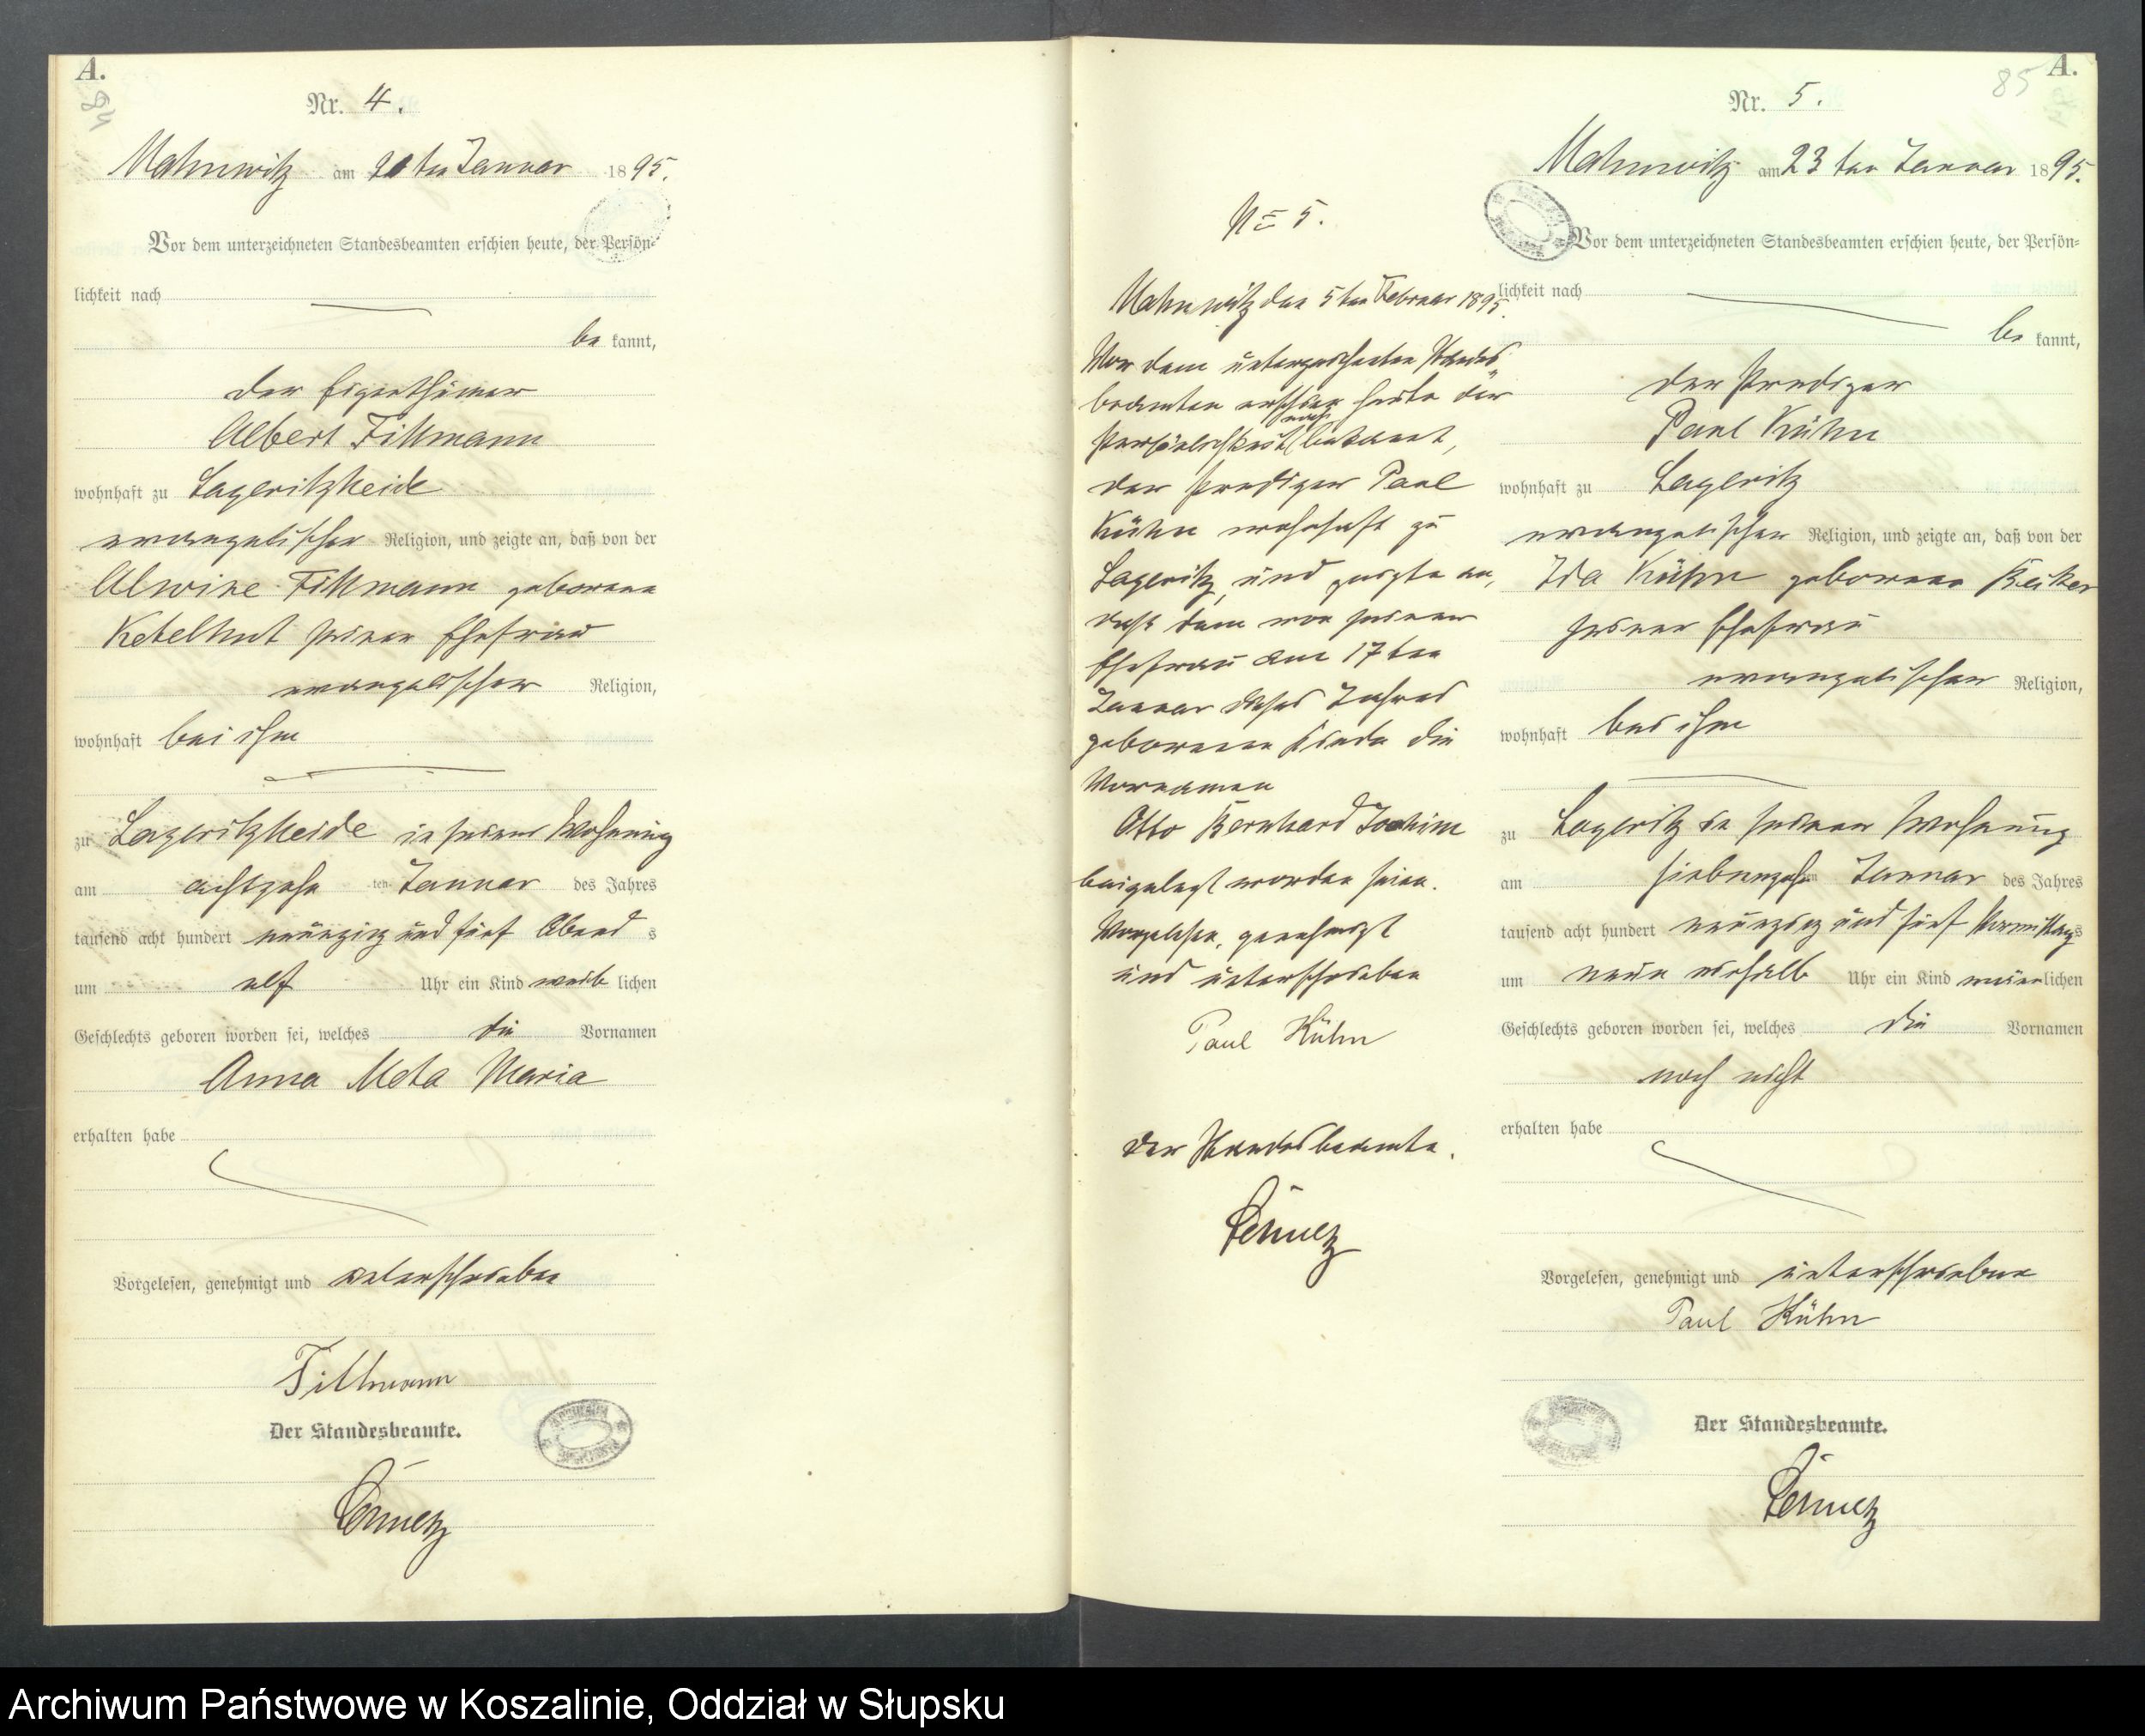 A.
84
Nr. 4.
Mahnwitz am 20ten Januar 1895.
Vor dem unterzeichneten Standesbeamten erschien heute, der Persön-
lichkeit nach
be kannt,
der Eigenthümer
Albert Tillmann
wohnhaft zu Lageritzheide
evangelischer Religion, und zeigte an, daß von der
Alwine Tillmann geborene
Ketelhut seiner Ehefrau
evangelischer Religion,
wohnhaft bei ihm
zu Lageritzheide in seiner Wohnung
am achtzehn ten Januar des Jahres
tausend acht hundert neunzig und fünf Abend s
um elf Uhr ein Kind weib lichen
Geschlechts geboren worden sei, welches die Vornamen
Anna Meta Maria
erhalten habe
Vorgelesen, genehmigt und unterschrieben
Tillmann
Der Standesbeamte.
No 5.
Mahnwitz den 5ten Februar 1895.
Vor dem unterzeichneten Standes-
beamten erschien heute der
Persönlichkeit nach bekannt,
der Prediger Paul
Kühn wohnhaft zu
Lageritz, und zeigte an,
daß dem von seiner
Ehefrau am 17ten
Januar dieses Jahres
geborenen Kinde die
Vornamen
Otto Bernhard Joachim
beigelegt worden seien.
Vorgelesen, genehmigt
und unterschrieben
Paul Kühn
Der Standesbeamte.
A.
85
Nr. 5.
Mahnwitz am 23ten Januar 1895.
Vor dem unterzeichneten Standesbeamten erschien heute, der Persön-
lichkeit nach
be kannt,
der Prediger
Paul Kühn
wohnhaft zu Lageritz
evangelischer Religion, und zeigte an, daß von der
Ida Kühn geborene
seiner Ehefrau
evangelischer Religion,
wohnhaft bei ihm
zu Lageritz in seiner Wohnung
am siebenzehnten Januar des Jahres
tausend acht hundert neunzig und fünf Vormittags
um neun einhalb Uhr ein Kind männlichen
Geschlechts geboren worden sei, welches die Vornamen
noch nicht
erhalten habe
Vorgelesen, genehmigt und unterschrieben
Paul Kühn
Der Standesbeamte.
Archiwum Państwowe w Koszalinie, Oddział w Słupsku